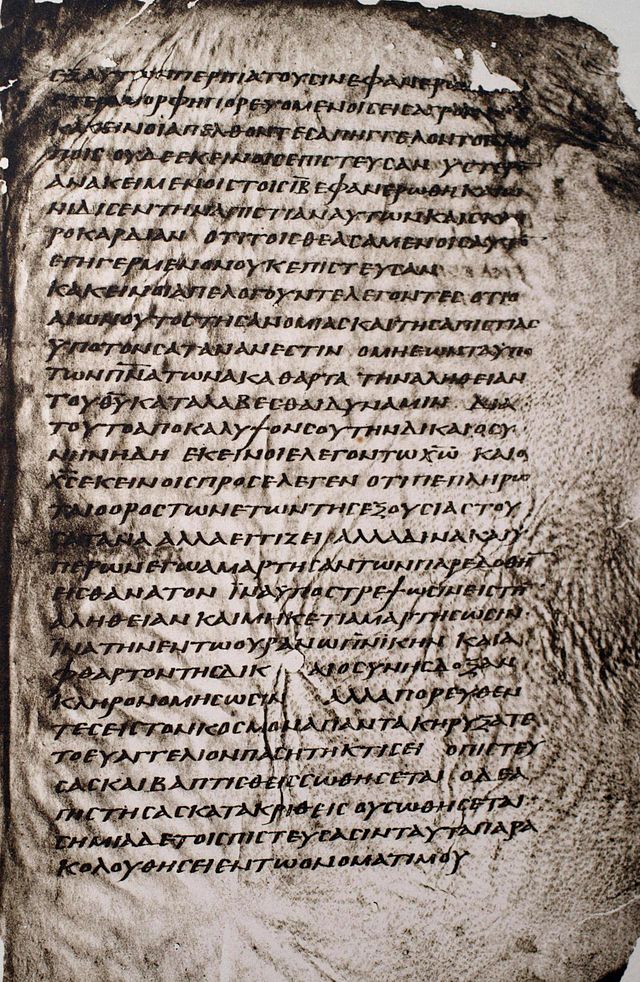 ΕΞΑΥΤΩΝΠΕΡΙΠΑΤΟΥϹΙΝΕΦΑΝΕΡΩ
ΕΤΕΡΑΜΟΡΦΗΠΟΡΕΥΟΜΕΝΟΙϹΕΙϹΑΓΡΟΝ
ΚΑΚΕΙΝΟΙΑΠΕΛΘΟΝΤΕϹΑΠΗΓΓΕΛΟΝΤΟΙϹΛΟΙ
ΠΟΙϹ ΟΥΔΕΕΚΕΙΝΟΙϹΕΠΙϹΤΕΥϹΑΝ ΥϹΤΕΡΟ
ΑΝΑΚΕΙΜΕΝΟΙϹΤΟΙϹΙ̅Β̅ΕΦΑΝΕΡΩΘΗΚΑΙΩ
ΝΙΔΙϹΕΝΤΗΝΑΠΙϹΤΙΑΝΑΥΤΩΝΚΑΙϹΚΛΗ
ΡΟΚΑΡΔΙΑΝ ΟΤΙΤΟΙϹΘΕΑϹΑΜΕΝΟΙϹΑΥΤΟ
ΕΓΗΓΕΡΜΕΝΟΝΟΥΚΕΠΙϹΤΕΥϹΑΝ
ΚΑΚΕΙΝΟΙΑΠΕΛΟΓΟΥΝΤΕΛΕΓΟΝΤΕϹ ΟΤΙΟ
ΑΙΩΝΟΥΤΟϹΤΗϹΑΝΟΜΙΑϹΚΑΙΤΗϹΑΠΙϹΤΙΑϹ
ΥΠΟΤΟΝϹΑΤΑΝΑΝΕϹΤΙΝ ΟΜΗΕΩΝΤΑΥΠΟ
ΤΩΝΠ̅Ν̅ΑΤΩΝΑΚΑΘΑΡΤΑ ΤΗΝΑΛΗΘΕΙΑΝ
ΤΟΥΘ̅Υ̅ΚΑΤΑΛΑΒΕϹΘΑΙΔΥΝΑΜΙΝ ΔΙΑ
ΤΟΥΤΟΑΠΟΚΑΛΥΨΟΝϹΟΥΤΗΝΔΙΚΑΙΟϹΥ
ΝΗΝΗΔΗ ΕΚΕΙΝΟΙΕΛΕΓΟΝΤΩΧ̅Ω̅ ΚΑΙΟ
Χ̅Ϲ̅ΕΚΕΙΝΟΙϹΠΡΟϹΕΛΕΓΕΝ ΟΤΙΠΕΠΛΗΡΩ
ΤΑΙΟΟΡΟϹΤΩΝΕΤΩΝΤΗϹΕΞΟΥϹΙΑϹΤΟΥ
ϹΑΤΑΝΑ ΑΛΛΑΕΓΓΙΖΕΙ ΑΛΛΑΔΙΝΑΚΑΙΥ
ΠΕΡΩΝΕΓΩΑΜΑΡΤΗϹΑΝΤΩΝΠΑΡΕΔΟΘΗ
ΕΙϹΘΑΝΑΤΟΝ ΪΝΑΥΠΟϹΤΡΕΨΩϹΙΝΕΙϹΤΗ
ΑΛΗΘΕΙΑΝ ΚΑΙΜΗΚΕΤΙΑΜΑΡΤΗϹΩϹΙΝ
ΙΝΑΤΗΝΕΝΤΩΟΥΡΑΝΩΠ̅Ν̅ΙΚΗΝ ΚΑΙΑ
ΦΘΑΡΤΟΝΤΗϹΔΙΚΑΙΟϹΥΝΗϹΔΟΞΑΝ
ΚΛΗΡΟΝΟΜΗϹΩϹΙΝ ΑΛΛΑΠΟΡΕΥΘΕΝ
ΤΕϹΕΙϹΤΟΝΚΟϹΜΟΝΑΠΑΝΤΑΚΗΡΥΞΑΤΕ
ΤΟΕΥΑΓΓΕΛΙΟΝΠΑϹΗΤΗΚΤΙϹΕΙ ΟΠΙϹΤΕΥ
ϹΑϹΚΑΙΒΑΠΤΙϹΘΕΙϹϹΩΘΗϹΕΤΑΙ ΟΔΕΑ
ΠΙϹΤΗϹΑϹΚΑΤΑΚΡΙΘΕΙϹ ΟΥϹΩΘΗϹΕΤΑΙ
ϹΗΜΙΑΔΕΤΟΙϹΠΙϹΤΕΥϹΑϹΙΝΤΑΥΤΑΠΑΡΑ
ΚΟΛΟΥΘΗϹΕΙΕΝΤΩΟΝΟΜΑΤΙΜΟΥ